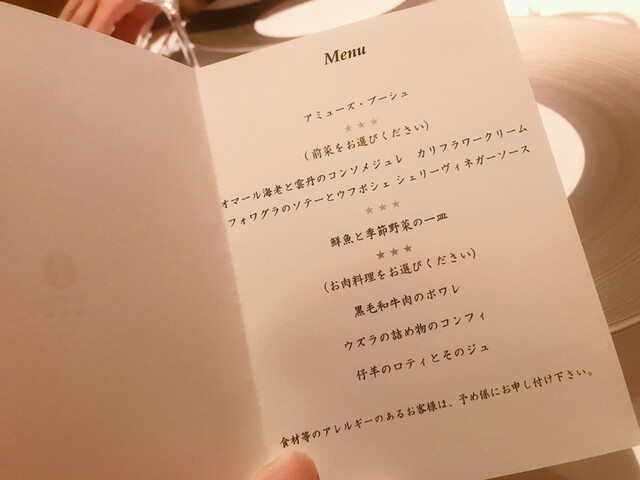 Menu
アミューズ・ブーシュ
★★★
(前菜をお選びください)
オマール海老と雲丹のコンソメジュレ カリフラワークリーム
フォワグラのソテーとウフポシェ シェリーヴィネガーソース
★★★
鮮魚と季節野菜の一皿
★★★
(お肉料理をお選びください)
黒毛和牛肉のポワレ
ウズラの詰め物のコンフィ
仔羊のロティとそのジュ
食材等のアレルギーのあるお客様は、予め係にお申し付け下さい。